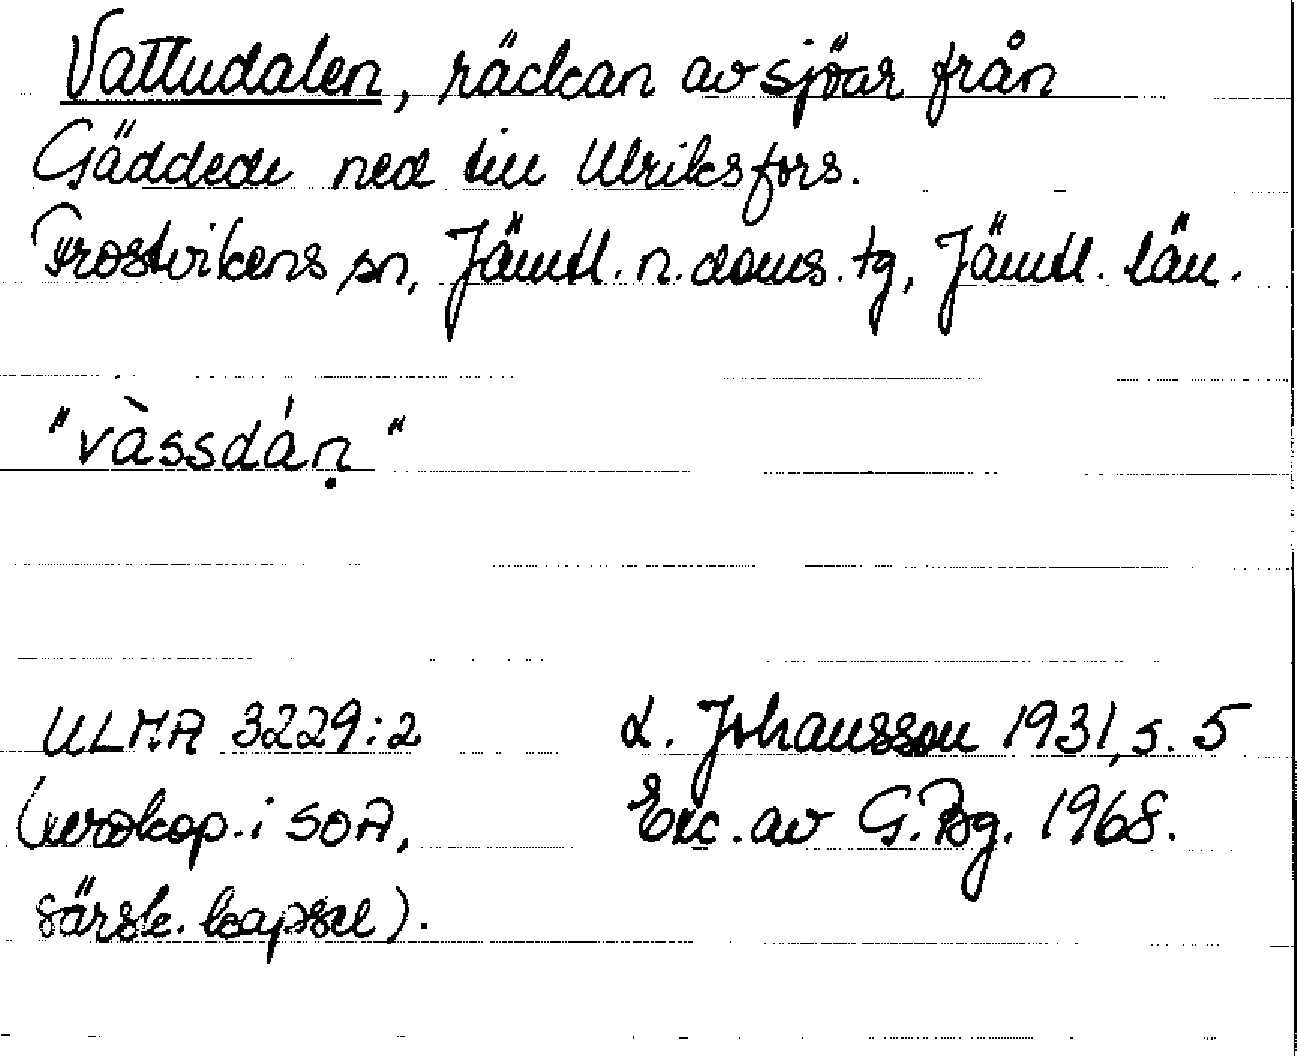 Vattudalen, räckan av sjöar från
Gäddede ned till Ulriksfors.
Frostvikens sn, Jämtl. n. doms. tg, Jämtl. län.
"vàssdáṇ"
ULMA 3229:2 L. Johansson 1931, s. 5
(xerokop. i SOA, Exc. av G. Bg. 1968.
särsk. kapsel).